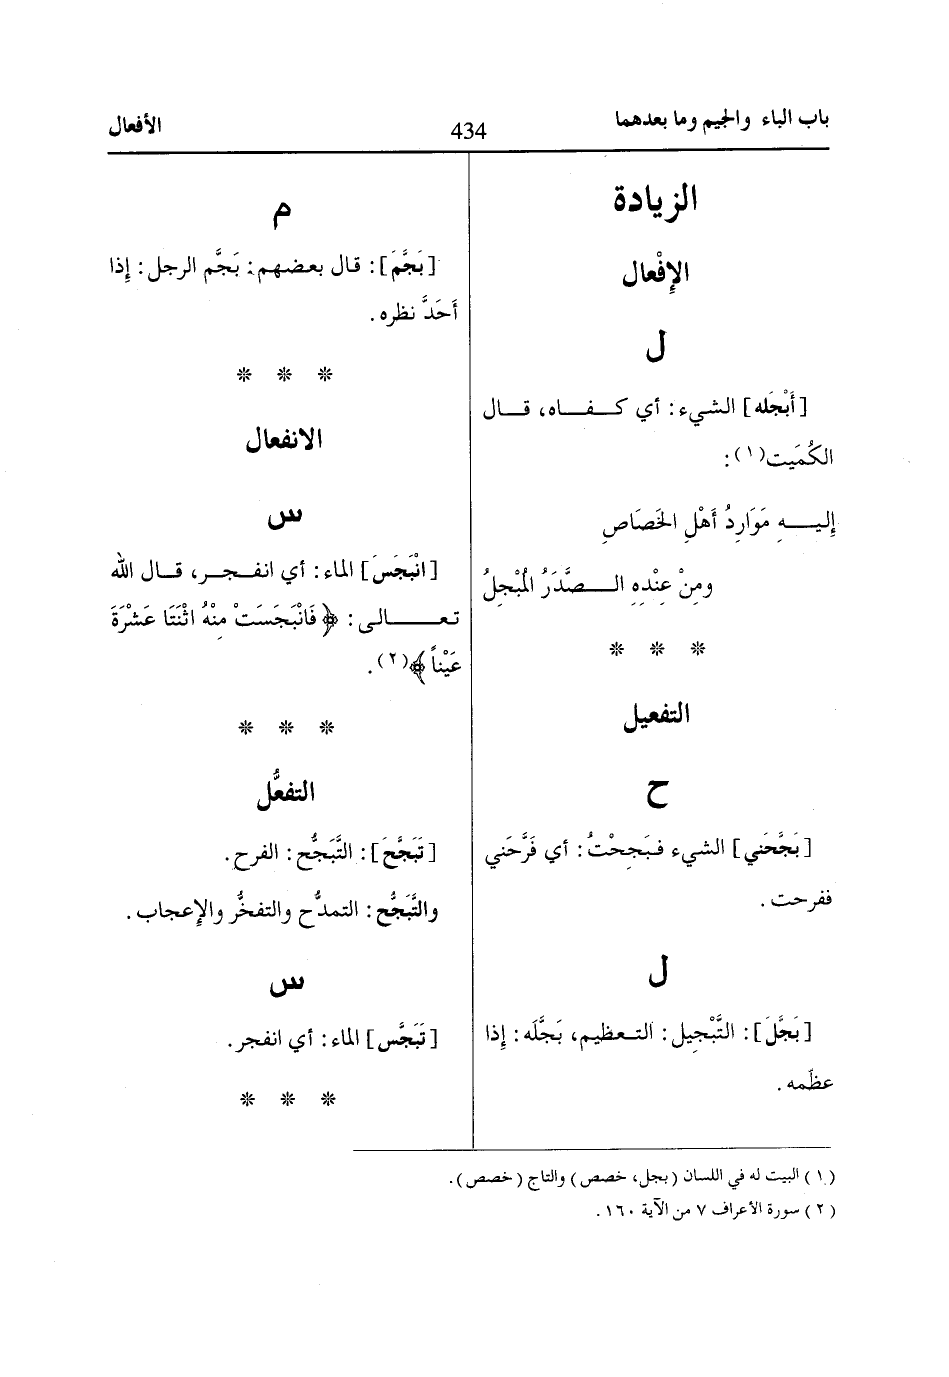 باب الباء والجيم وما بعدهما
434
الأفعال
الزيادة
الإِفْعال
ل
[أَبْجَله] الشيء: أي كفاه، قال
الكُمَيت(١):
إليه مَوَارِدُ أَهْلِ الخَصَاصِ
ومِنْ عِنْدِهِ الصَّدَرُ المُبْجِلُ
❊ ❊ ❊
التفعيل
ح
[بَجَّحَني] الشيء فبَجِحْتُ: أي فَرَّحَني
ففرحت.
ل
[بَجَّلَ]: التَّبْجِيل: التعظيم، بَجَّلَه: إذا
عظّمه.
م
[بَجَّمَ]: قال بعضهم: بَجَّم الرجل: إِذا
أَحَدَّ نظره.
❊ ❊ ❊
الانفعال
س
[انْبَجَسَ] الماء: أي انفجر، قال الله
تعالى: ﴿فَانْبَجَسَتْ مِنْهُ اثْنَتَا عَشْرَةَ
عَيْناً﴾(٢).
❊ ❊ ❊
التفعُّل
[تَبَجَّحَ]: التَّبَجُّح: الفرح.
والتَّبَجُّح: التمدُّح والتفخُّر والإِعجاب.
س
[تَبَجَّس] الماء: أي انفجر.
❊ ❊ ❊
(١) البيت له في اللسان (بجل، خصص) والتاج (خصص).
(٢) سورة الأعراف ٧ من الآية ١٦٠.